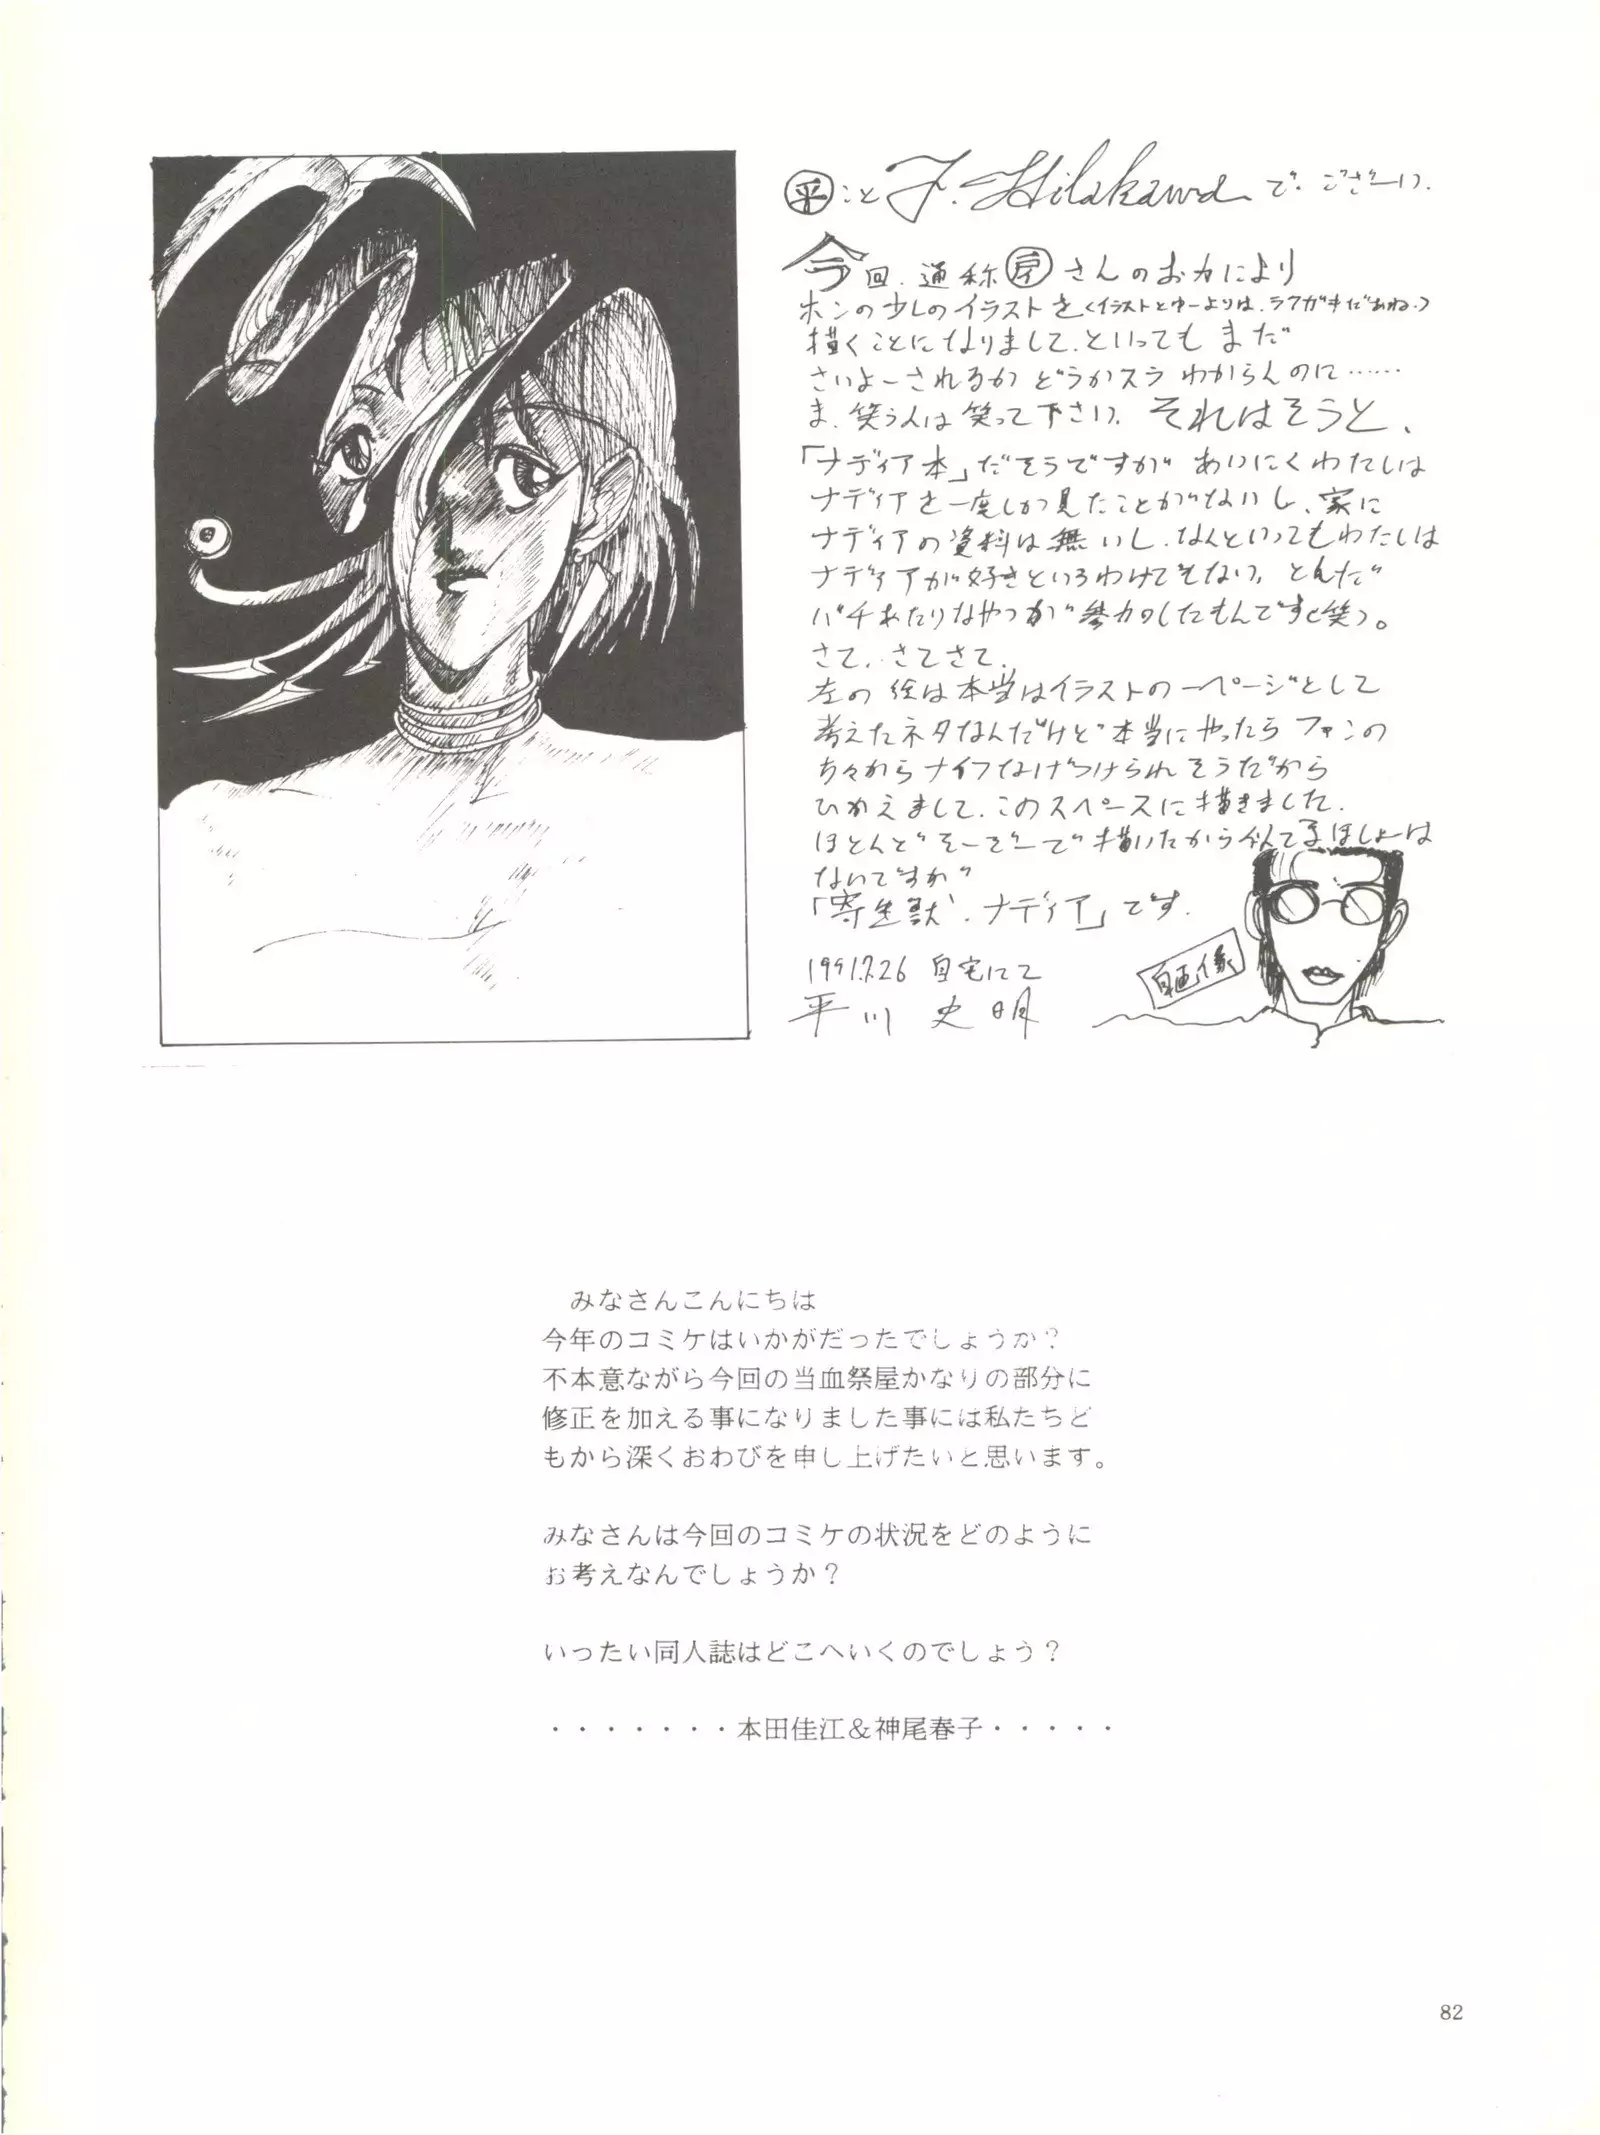 ㊤こと F. Hilakawa でございーい.
今回.通称 さんのお力により
ホンの少しのイラストを(イラストとゆーよりは.ラクガキだあね.)
描くことになりまして.といってもまだ
さいよーされるかどうかスラわからんのに……
ま、笑う人は笑って下さい。それはそうと、
「ナディア本」だそうですが あいにくわたしは
ナディアを一度しか見たことがないし、家に
ナディアの資料は無いし、なんといってもわたしは
ナディアが好きというわけでもない。とんだ
バチあたりなやつが参加したもんです(笑)。
さて、さてさて、
左の絵は本当はイラストの一ページとして
考えたネタなんだけど本当にやったらファンの
方々からナイフなげつけられそうだから
ひかえまして.このスペースに描きました.
ほとんどそーぞーで描いたから似てましょーは
ないですが
「寄生獣・ナディア」です.
1991.7.26 自宅にて
平川 史明
自画像
みなさんこんにちは
今年のコミケはいかがだったでしょうか？
不本意ながら今回の当血祭屋かなりの部分に
修正を加える事になりました事には私たちど
もから深くおわびを申し上げたいと思います。
みなさんは今回のコミケの状況をどのように
お考えなんでしょうか？
いったい同人誌はどこへいくのでしょう？
・・・・・・・本田佳江＆神尾春子・・・・・
82